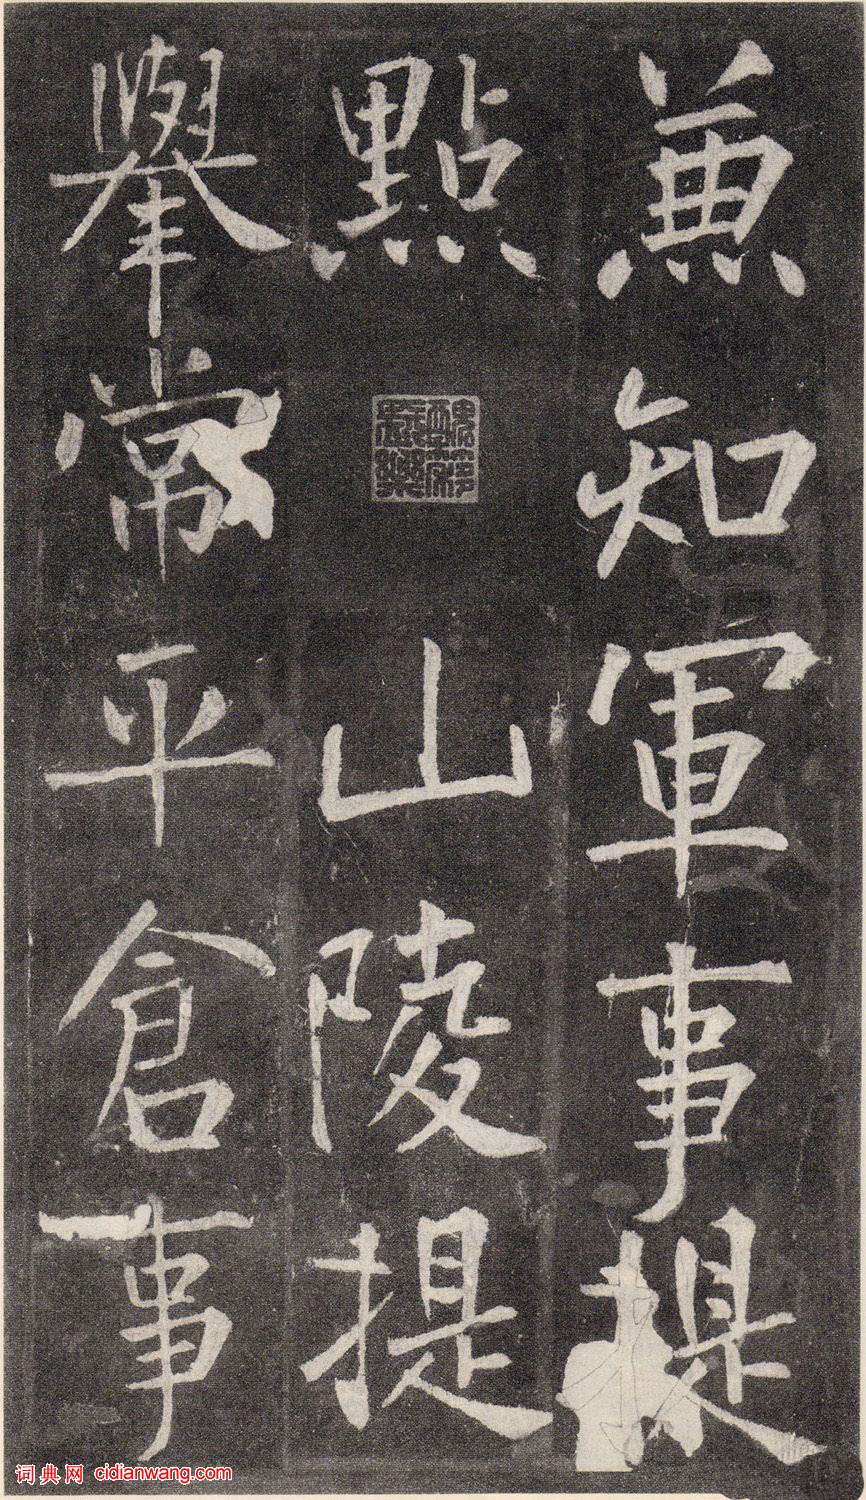 兼知軍事提
點山陵提
舉常平倉事
词典网 cidianwang.com